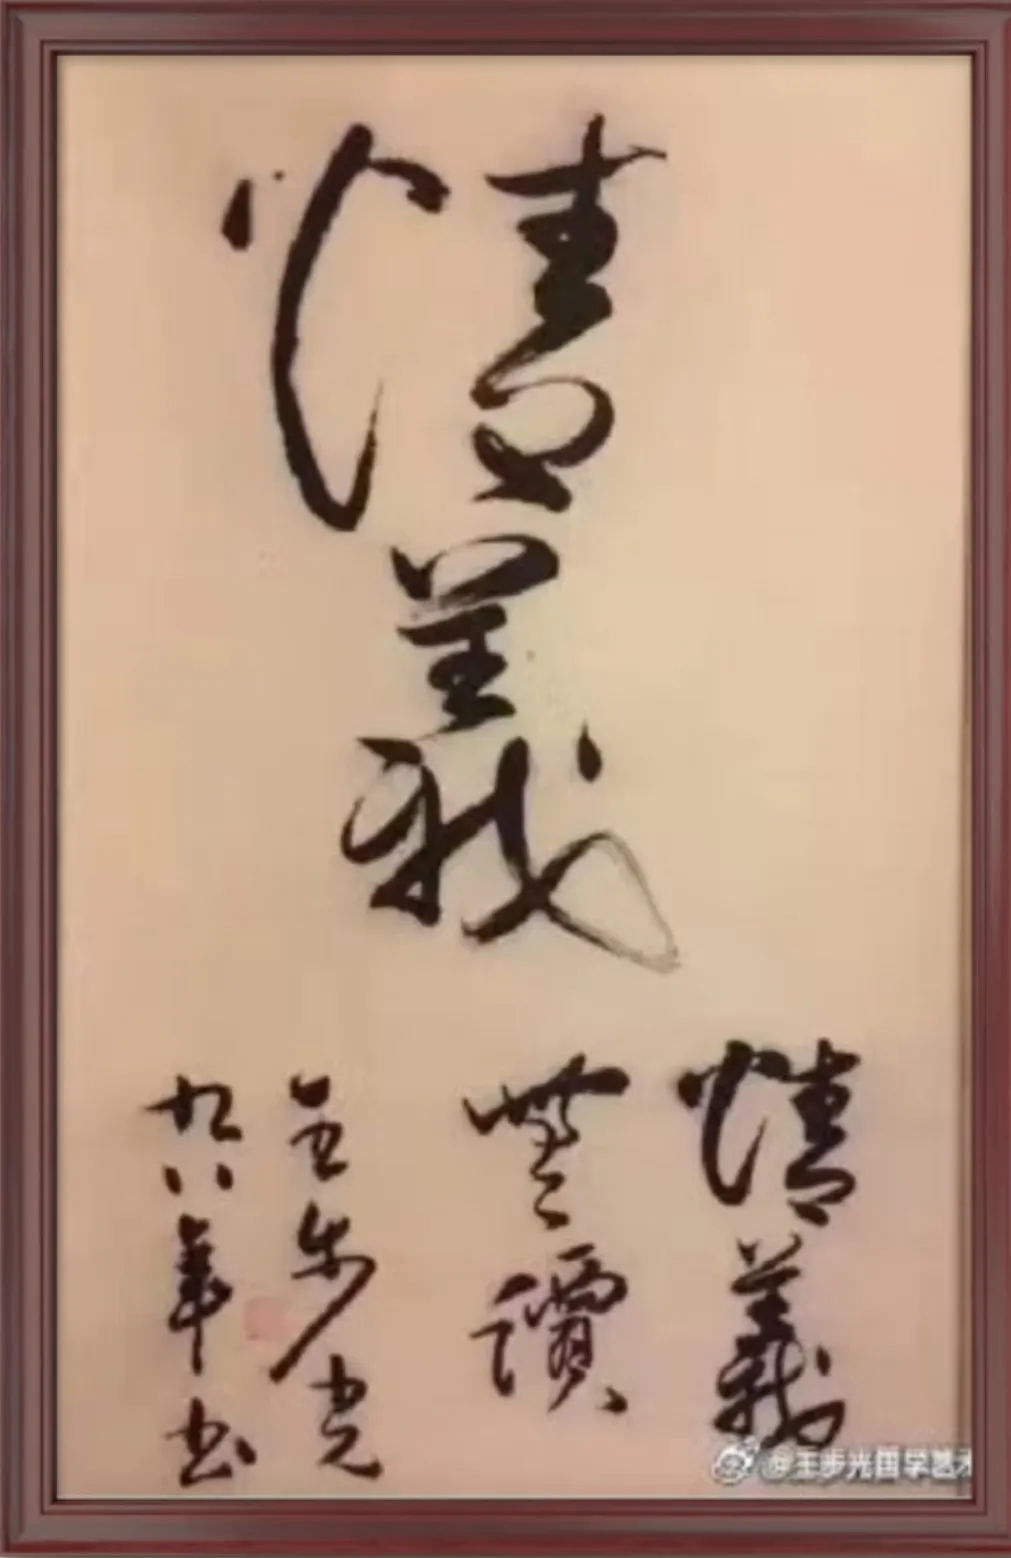 情義
情義
無價
王步光
九八年书
@王步光国学艺术